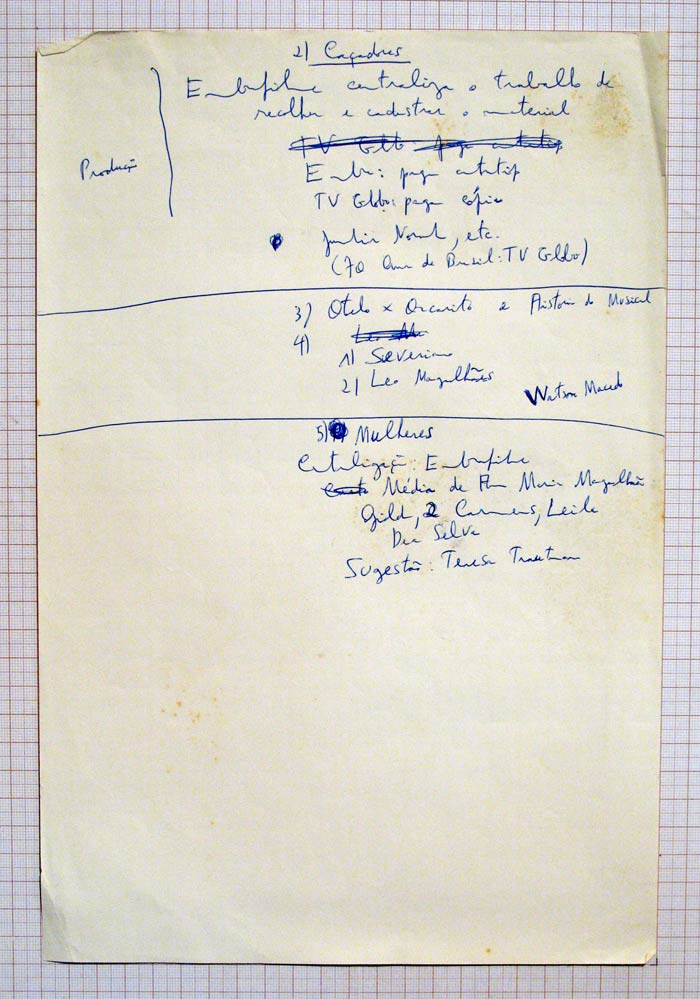 2) Caçadores
Embrafilme centraliza o trabalho de
recolher e cadastrar o material
Produção
TV Globo: paga contratip
Embra: paga contratip
TV Globo: paga cópia
Jornal, etc.
(70 Anos de Brasil: TV Globo)
3) Otelo x Oscarito e História do Musical
4)
1) Severiano
2) Leo Magalhães
Watson Macedo
5) Mulheres
Embrafilme
Média de Ana Maria Magalhães
Gilda, 2 Carmens, Leila
Dea Selva
Sugestão: Teresa Trautman